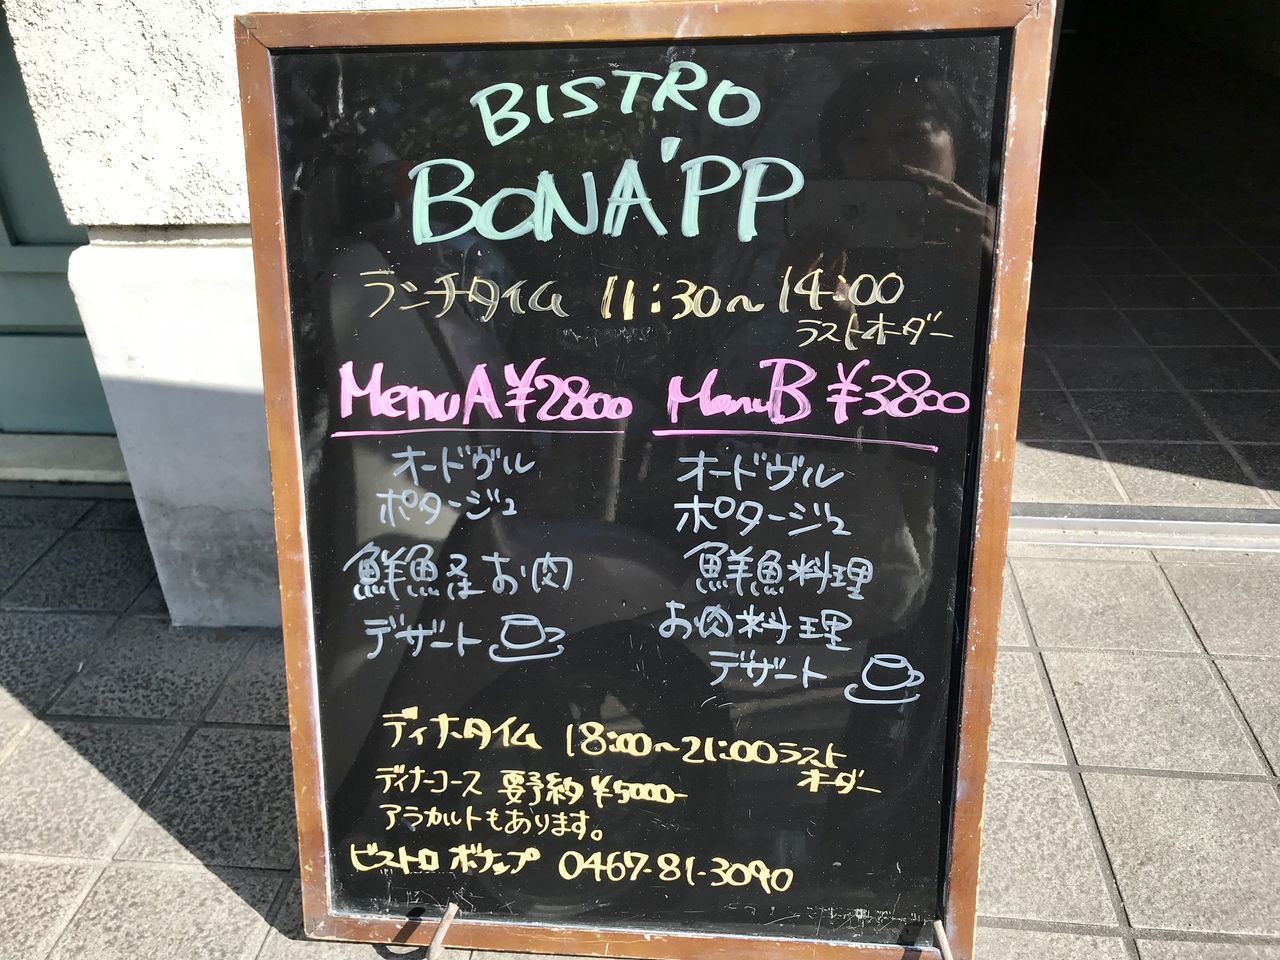 BISTRO
BONA'PP
ランチタイム 11:30〜14:00
ラストオーダー
Menu A ¥2800
オードヴル
ポタージュ
鮮魚 お肉
デザート
Menu B ¥3800
オードヴル
ポタージュ
鮮魚料理
お肉料理
デザート
ディナータイム 18:00〜21:00 ラスト
オーダー
ディナーコース 要予約 ¥5000-
アラカルトもあります。
ビストロ ボナップ 0467-81-3090